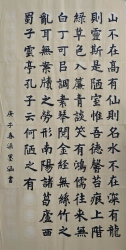 山不在高有仙則名水不在深有龍
則靈斯是陋室惟吾德馨苔痕上階
綠草色入簾青談笑有鴻儒往來無
白丁可以調素琴閱金經無絲竹之
亂耳無案牘之勞形南陽諸葛廬西
蜀子雲亭孔子云何陋之有
庚子春書